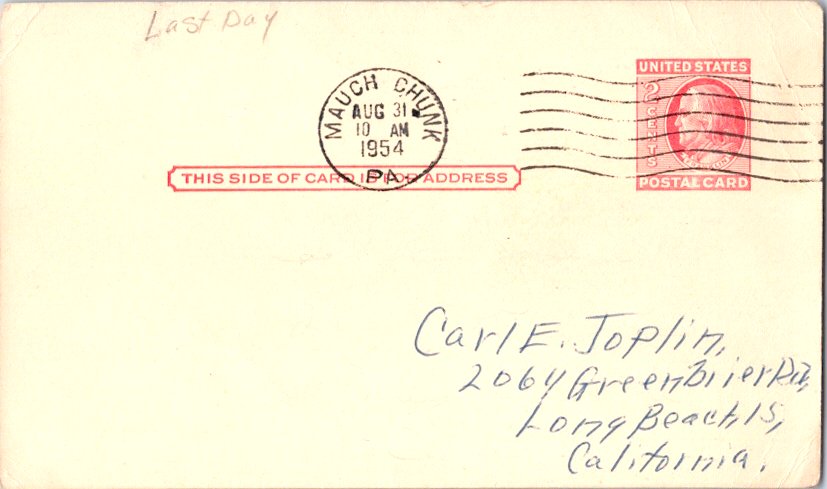 Last Day
MAUCH CHUNK
AUG 31
10 AM
1954
PA.
UNITED STATES
2 CENTS
POSTAL CARD
THIS SIDE OF CARD IS FOR ADDRESS
Carl E. Joplin,
2064 Greenbrier Rd,
Long Beach, 15,
California.